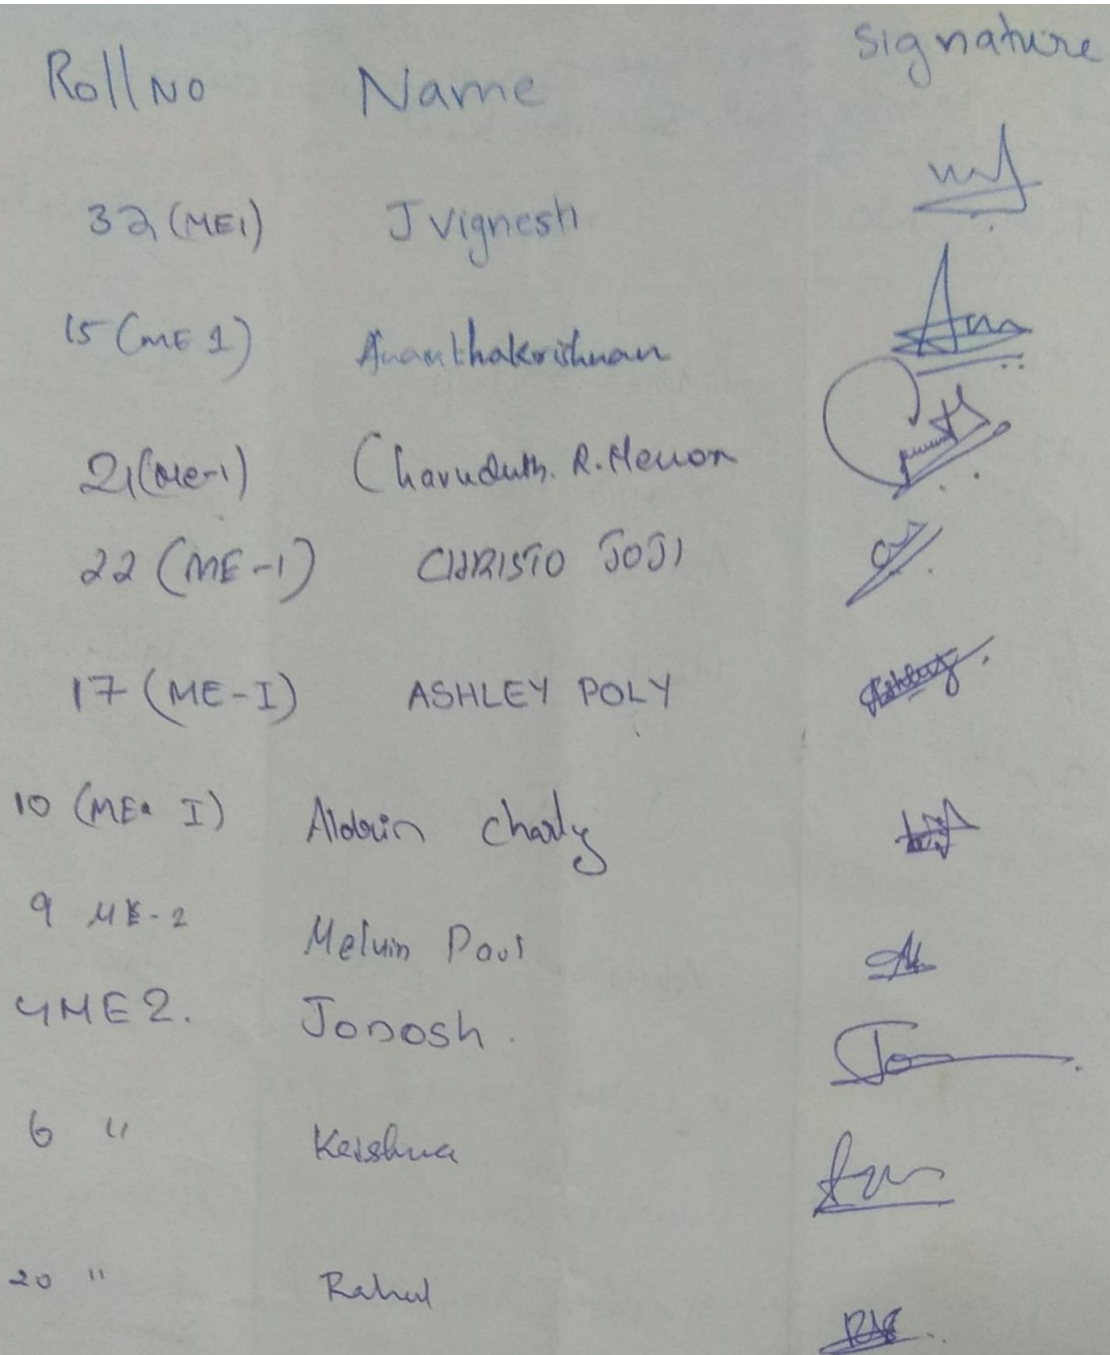 Roll No Name Signature
32 (ME1) J Vignesh
15 (ME 1) Ananthakrishnan
21 (Me-1) Charuduth. R. Menon
22 (ME-1) CHRISTO JOJI
17 (ME-I) ASHLEY POLY Ashley
10 (ME I) Aldrin Charly
9 ME-2 Melvin Paul
4 ME 2. Jobosh.
6 " Krishna
20 " Rahul